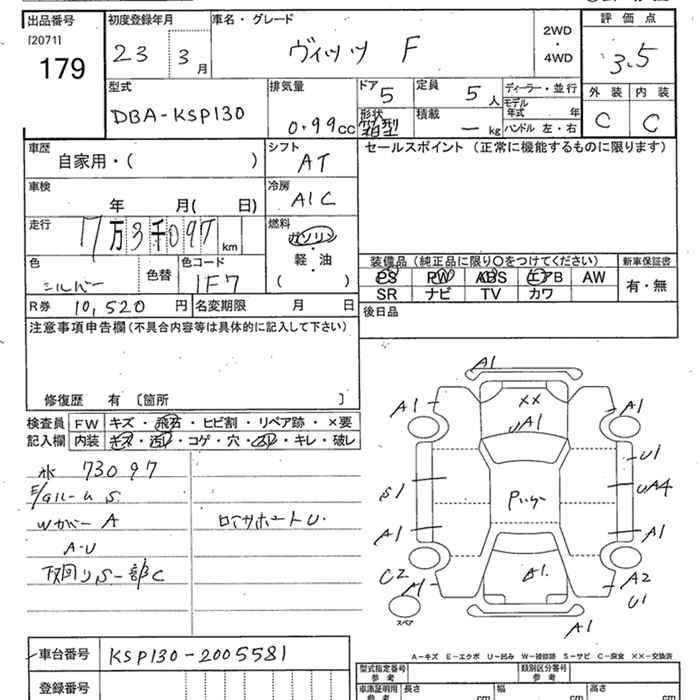 出品番号 初度登録年月 車名・グレード 評価点
[2071]
179
23 3月 ヴィッツ F 2WD・4WD 3.5
型式 排気量 ドア 定員 ディーラー・並行 外装 内装
DBA-KSP130 0.99cc 5 5人 モデル年式 年 C C
形状 箱型 積載 -kg ハンドル 左・右
車歴 シフト セールスポイント(正常に機能するものに限ります)
自家用・( ) AT
車検 冷房
年 月( 日) A/C
走行 燃料
17万3千097km ガソリン・軽・油
色 色替 色コード ( ) 装備品(純正品に限り○をつけてください) 新車保証書
シルバー 1F7 PS PW ABS エアB AW 有・無
SR ナビ TV カワ
R券 10,520円 名変期限 月 日 後日品
注意事項申告欄(不具合内容等は具体的に記入して下さい)
修復歴 有 〔箇所 〕
検査員 FW キズ・飛石・ヒビ割・リペア跡・×要
記入欄 内装 キズ・汚れ・コゲ・穴・スレ・キレ・破レ
A1
XX
A1 A1
UA1
U1
S1 UA4
A1 A1
C2 A1 A2
U1
スペア
A1
水 73097
S
Wカバー A
ロアサポートU.
A・U
下回りS一部C
A-キズ E-エクボ U-凹み W-補修跡 S-サビ C-腐食 ××-交換済
車台番号 KSP130-2005581
型式指定番号 参考 類別区分番号 参考
登録番号
車庫証明用 参考 長さ cm 幅 cm 高さ cm